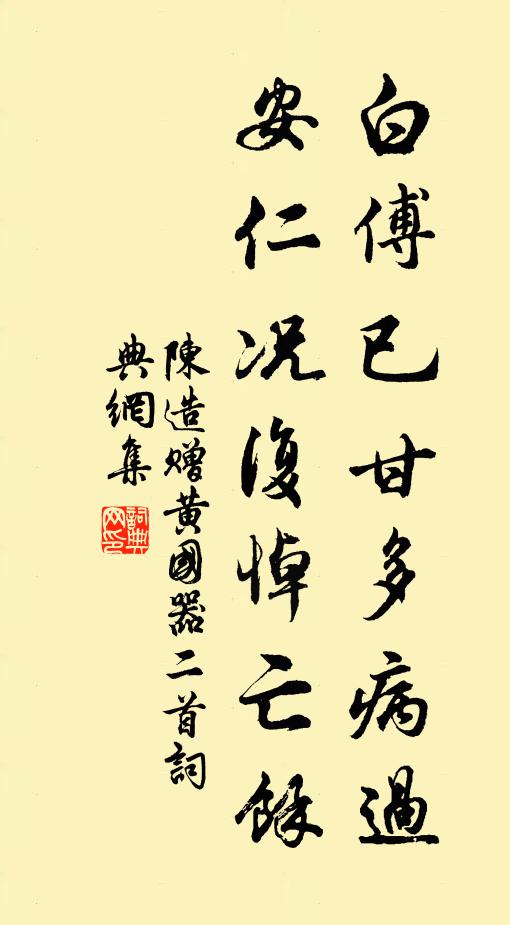 白傅已甘多病過
安仁况復悼亡餘
陳造贈黄國器二首詞
典網集
詞典網印